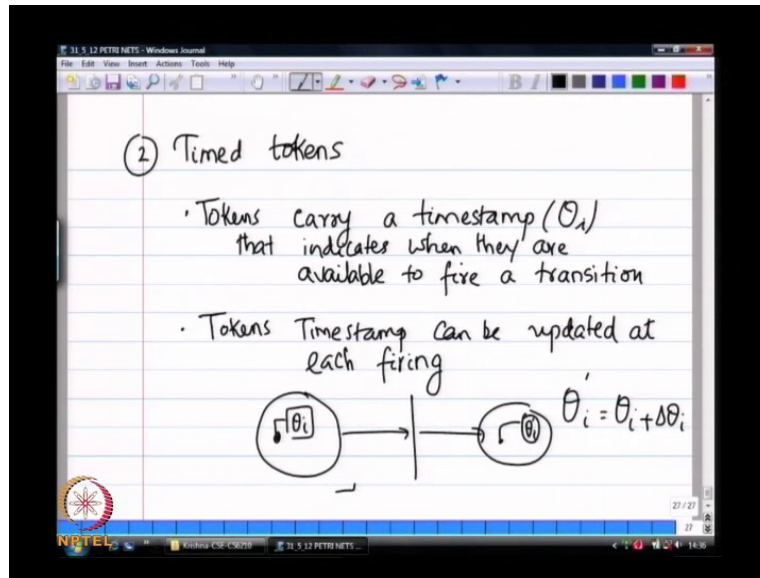 31_5_12 PETRI NETS - Windows Journal
File Edit View Insert Actions Tools Help
B I
② Timed tokens
· Tokens carry a timestamp (θi)
that indicates when they are
available to fire a transition
· Tokens Timestamp can be updated at
each firing
θi θi θi' = θi + Δθi
27 / 27
27
NPTEL
Krishna-CSE-CS6210 31_5_12 PETRI NETS ... 14:36